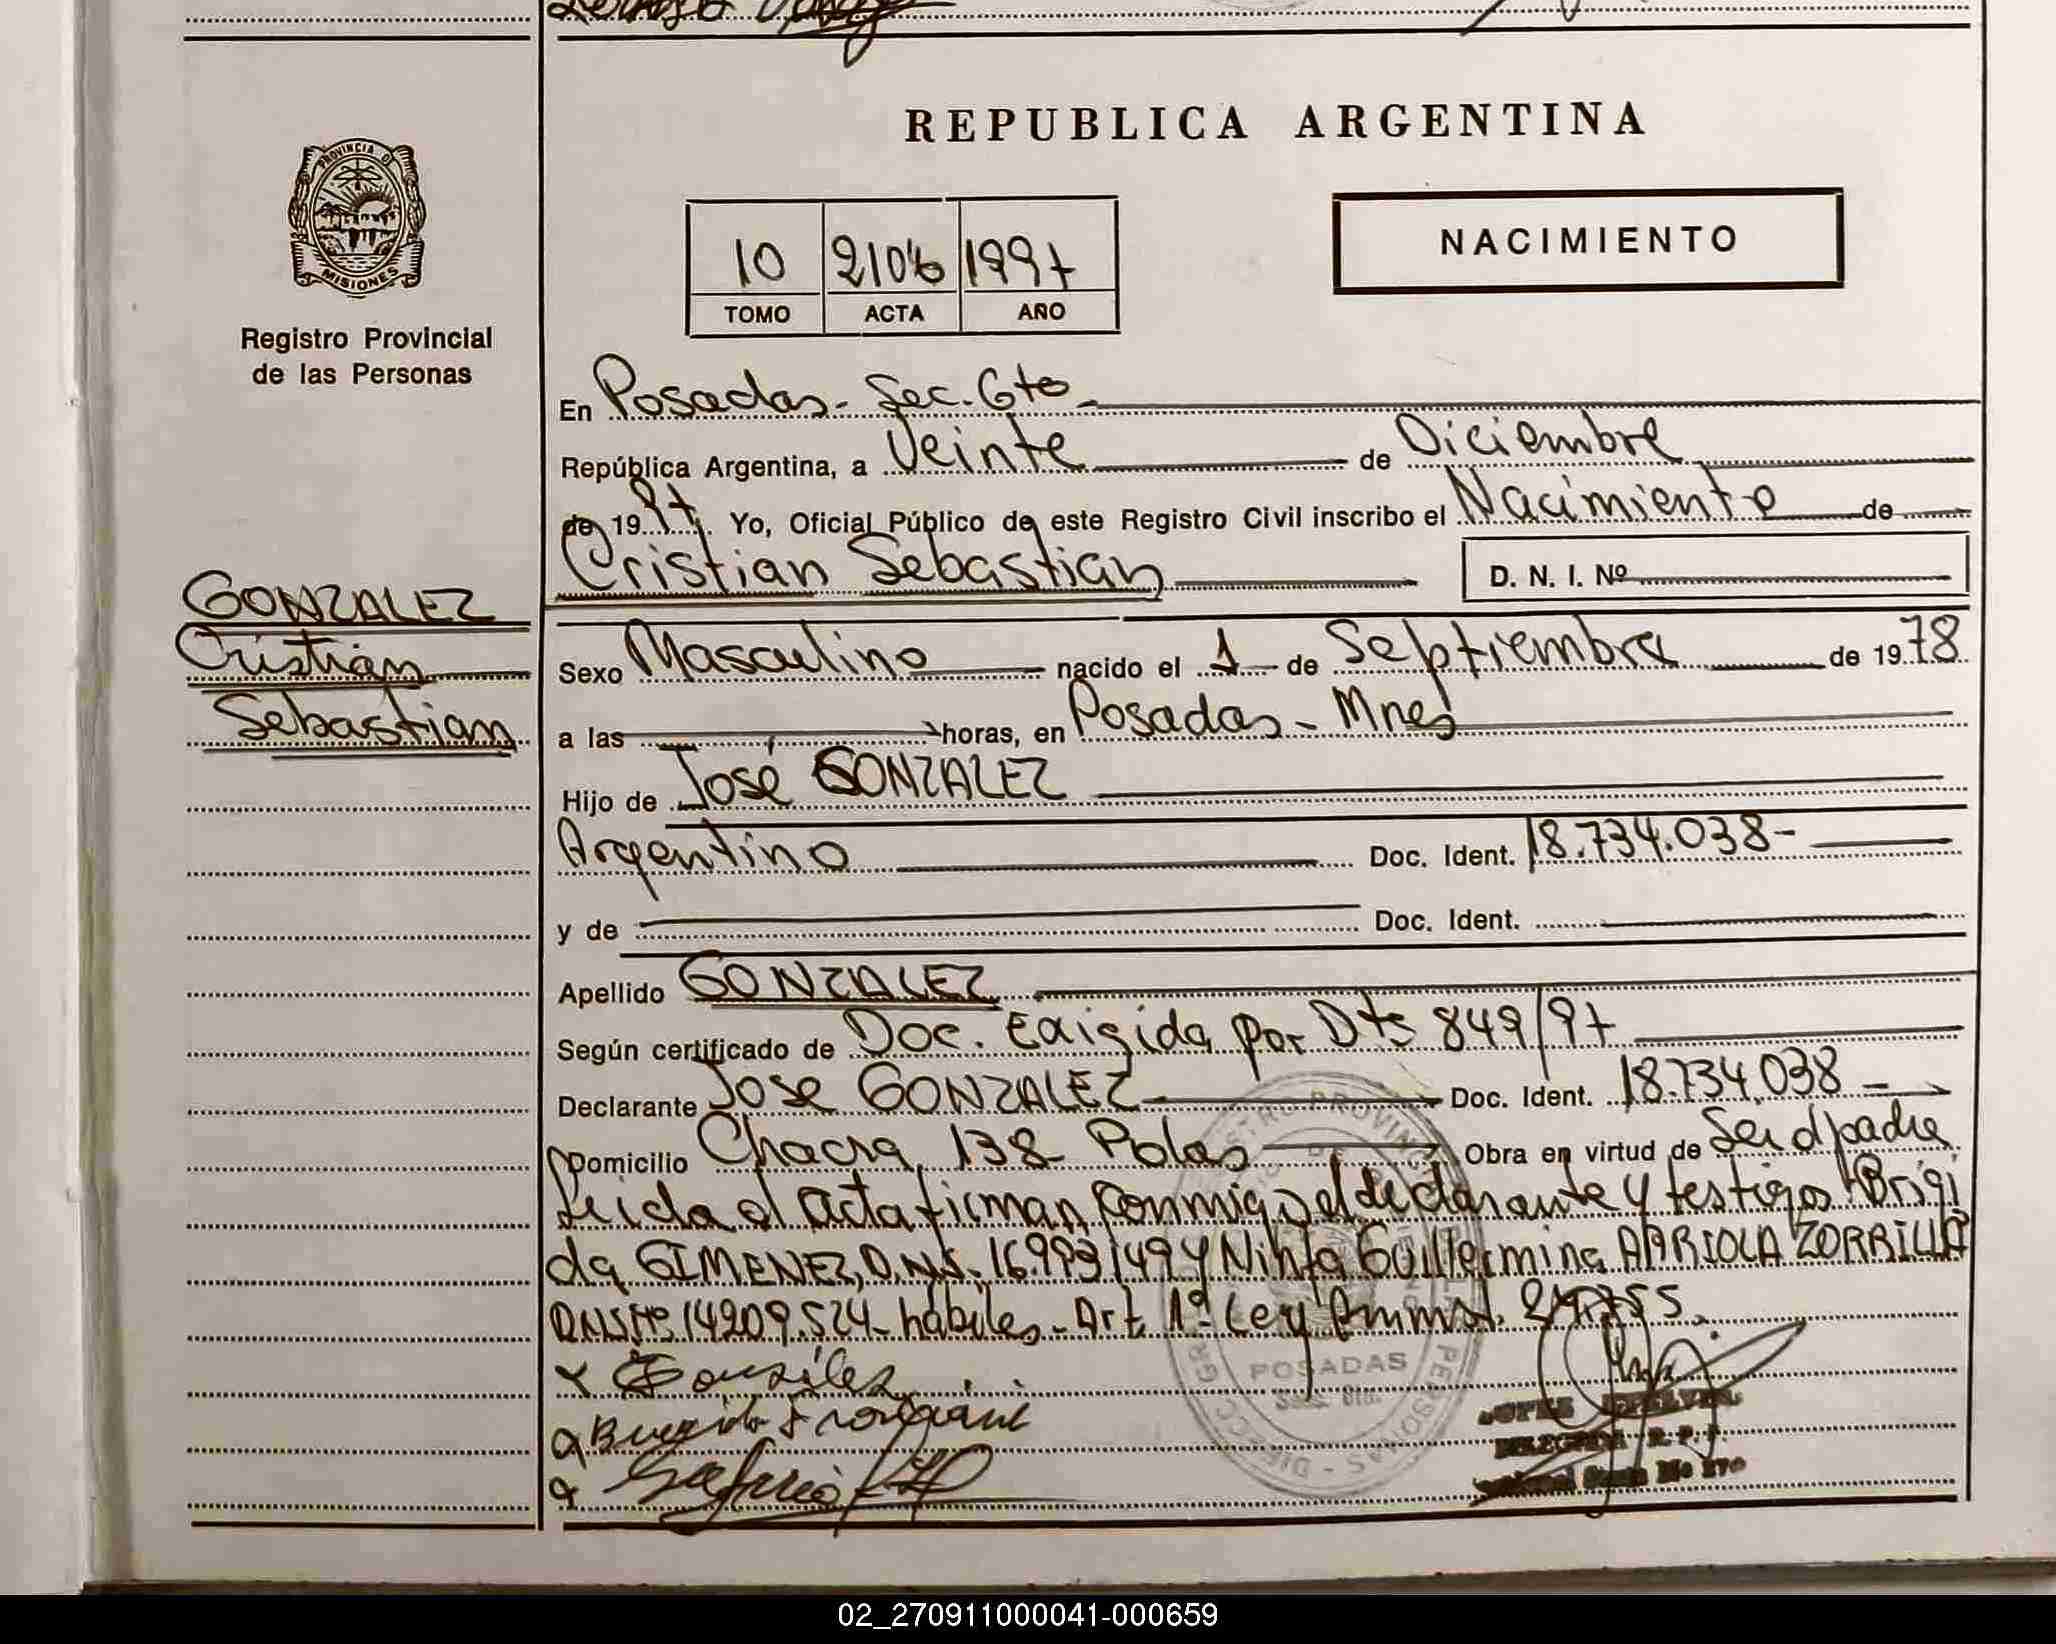 REPUBLICA ARGENTINA
PROVINCIA D
MISIONES
Registro Provincial
de las Personas
NACIMIENTO
10 2106 1997
TOMO ACTA AÑO
En Posadas - Sec. 6to -
República Argentina, a Veinte de Diciembre
de 1997. Yo, Oficial Público de este Registro Civil inscribo el Nacimiento de
Cristian Sebastian D. N. I. Nº
GONZALEZ
Cristian
Sebastian
Sexo Masculino nacido el 1 de Septiembre de 1978
a las horas, en Posadas - Mnes
Hijo de José GONZALEZ
Argentino Doc. Ident. 18.734.038-
y de Doc. Ident.
Apellido GONZALEZ
Según certificado de Doc. Exigida por Dts 849/97
Declarante Jose GONZALEZ Doc. Ident. 18.734.038
Domicilio Chacra 138 Pdas Obra en virtud de Ser el padre
Leida el acta firman conmigo el declarante y testigos Brigi
da GIMENEZ, D.N.I. 16.993.149 y Ninfa Guillermina ARRIOLA ZORRILLA
DNI Nº 14209.524- habiles - Art. 1º Ley
Gonzalez
POSADAS
DELEGADA R. P. P.
02_270911000041-000659